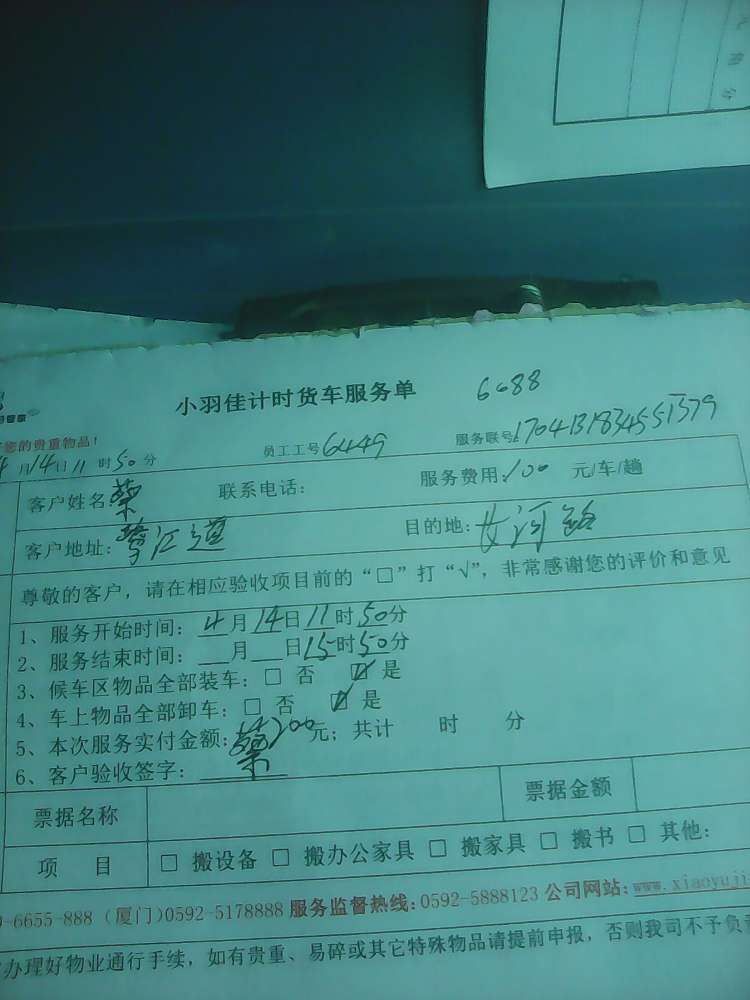 小羽佳计时货车服务单 6688
您的贵重物品！
员工工号6449 服务联号:1704131834551379
4月14日11时50分
客户姓名:蔡 联系电话: 服务费用:100 元/车/趟
客户地址: 目的地:
尊敬的客户，请在相应验收项目前的“□”打“√”，非常感谢您的评价和意见
1、服务开始时间：4月14日11时50分
2、服务结束时间：__月__日15时50分
3、候车区物品全部装车：□ 否 ☑ 是
4、车上物品全部卸车：□ 否 ☑ 是
5、本次服务实付金额：200元；共计 时 分
6、客户验收签字：蔡
票据名称 票据金额
项 目 □ 搬设备 □ 搬办公家具 □ 搬家具 □ 搬书 □ 其他：
0-6655-888 (厦门)0592-5178888 服务监督热线:0592-5888123 公司网站:www.xiaoyuji
办理好物业通行手续，如有贵重、易碎或其它特殊物品请提前申报，否则我司不予负